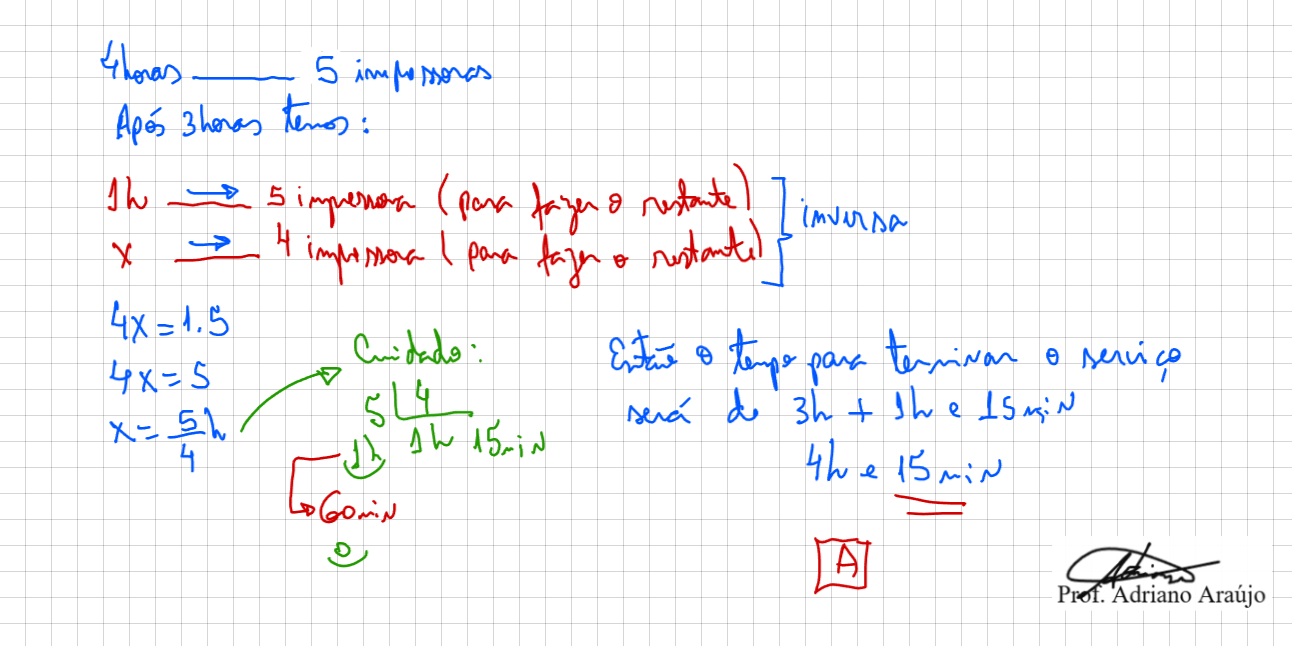 4horas 5 impressoras
Após 3horas temos:
1h 5 impressora (para fazer o restante)
x 4 impressora (para fazer o restante)
inversa
4x=1.5
4x=5
x=5/4h
Cuidado:
5 4
1h 1h 15min
60min
0
Então o tempo para terminar o serviço
será de 3h + 1h e 15min
4h e 15min
A
Prof. Adriano Araújo